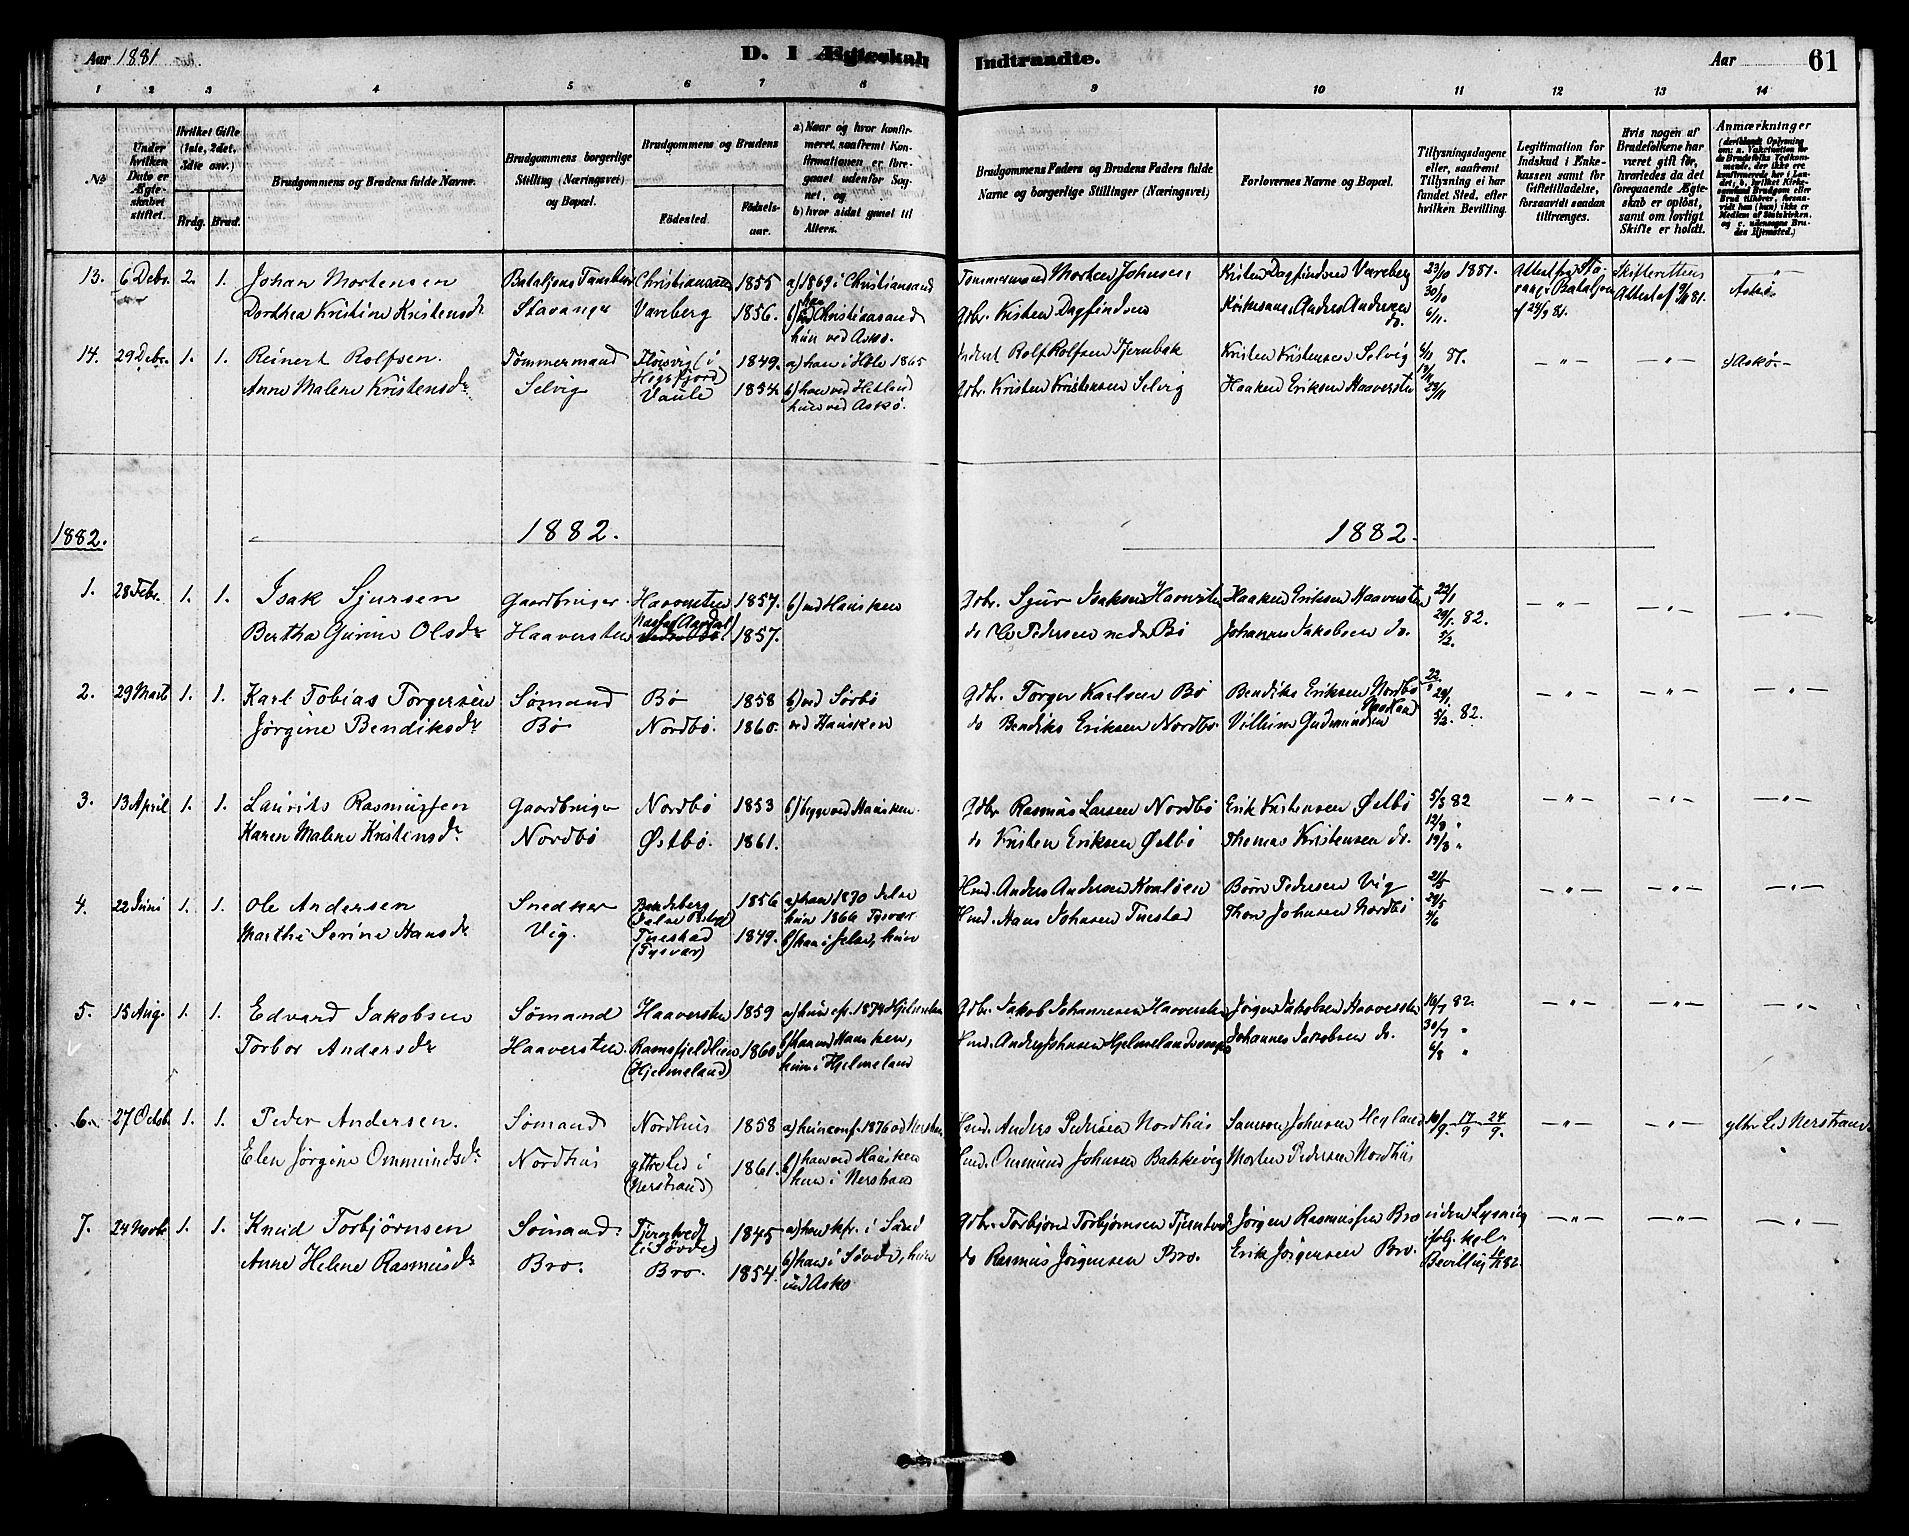 Aar 1881
D. I Ægteskab Indtraadte.
Aar
61
1 2 3 4 5 6 7 8 9 10 11 12 13 14
No
Under hvilken Dato er Ægteskabet stiftet.
Hvilket Gifte (1ste, 2det, 3die osv.)
Brdg. Brud.
Brudgommens og Brudens fulde Navne.
Brudgommens borgerlige Stilling (Næringsvei) og Bopæl.
Brudgommens og Brudens
Fødested.
Fødselsaar.
a) Naar og hvor konfirmeret, saafremt Konfirmationen er foregaaet udenfor Sognet, og
b) hvor sidst gaaet til Alters.
Brudgommens Faders og Brudens Faders fulde Navne og borgerlige Stillinger (Næringsvei)
Forlovernes Navne og Bopæl.
Tillysningsdagene eller, saafremt Tillysning ei har fundet Sted, efter hvilken Bevilling.
Legitimation for Indskud i Enkekassen samt for Giftetilladelse, forsaavidt saadan tiltrænges.
Hvis nogen af Brudefolkene har været gift før, hvorledes da det foregaaende Ægteskab er opløst, samt om lovligt Skifte er holdt.
Anmærkninger
13. 6 Debr. 2. 1. Johan Mortensen Bataljons Tambur Christiansand 1855 a) 1869 i Christiansand Tømmermand Morten Johnsen Kristen Dagfindsen Vareberg 23/10 1881. Skifterettens Askø
Dorthea Kristine Kristensdr Stavanger Vareberg 1856. b) Christiansand Gbr. Kristen Dagfindsen Anders Andersen do. 30/10 6/11 Attest af 81.
hun ved Askø.
14. 29 Debr. 1. 1. Reinert Rolfsen. Tømmermand i Høgsfjord 1849. a) han i Høle 1865 Rolf Rolfsen Tjernbak Kristen Kristensen Selvig 6/11 81. — " — — " — Askø —
Anne Malene Kristensdr Selvig Vaule 1854. b) han ved Hetland Gbr. Kristen Kristensen Selvig Haaken Eriksen Haaversten 13/11
hun ved Askø.
1882. 1882. 1882.
1. 28 Febr. 1. 1. Isak Sjursen Gaardbruger Haaversten 1857. b) ved Hausken Gbr. Sjur Isaksen Haaversten Haaken Eriksen Haaversten 22/1 — " — — " — — " —
Bertha Gurine Olsdr Haaversten 1857. do Ole Pedersen nedre Bø Johannes Jakobsen do. 29/1 82. 5/2.
2. 29 Marts 1. 1. Karl Tobias Torgersen Sømand Bø 1858 b) ved Sørbø Gbr. Torger Karlsen Bø Bendiks Eriksen Nordbø 22 29/1 — " — — " — — " —
Jørgine Bendiksdr Bø Nordbø. 1860. ved Hausken do Bendiks Eriksen Nordbø. Vilhelm Gudmundsen 5/2 82.
3. 13 April 1. 1. Laurits Rasmussen Gaardbruger Nordbø 1853 b) begge ved Hausken. Gbr Rasmus Larsen Nordbø Erik Kristensen Østbø 5/3 82 — " — — " — — " —
Karen Malene Kristensdr Nordbø Østbø. 1861. do Kristen Eriksen Østbø Thomas Kristensen do. 12/3 " 19/3 "
4. 22 Juni 1. 1. Ole Andersen Snedker 1856 a) han 1870 Jelse Hmd. Anders Andersen Børn Pedersen Vig 21/5 — " — — " — — " —
Marthe Serine Hansdr Vig. Tuestad (Tysvær) 1849. hun 1866 Tysvær b) han i Jelse, hun Hmd. Hans Johnsen Tuestad Thore Johnsen Nordbø 29/5
5. 15 Aug. 1. 1. Edvard Jakobsen Sømand Haaversten 1859 a) hun cf. 1874 Hjelmeland Gbr. Jakob Johannesen Haaversten Jørgen Jakobsen Haaversten 16/7 82. — " — — " — — " —
Torbor Andersdr Haaversten. Ramsfjeldlien (Hjelmeland) 1860 b) han ved Hausken, hun i Hjelmeland Hmd. Anders Johnsen Johannes Jakobsen do. 30/7 " 6/8 "
6. 27 Octob. 1. 1. Peder Andersen. Sømand Nordhus 1858 a) hun conf. 1876 ved Nerstrand Hmd. Anders Pedersen Nordhus Samson Johnsen Hegland 10/9 - 17/9 - 24/9. — " — — " — ytre Lid Nerstrand
Elen Jørgine Ommundsdr Nordhus ytre Lid i (Nerstrand) 1861. b) han ved Hausken hun i Nerstrand Hmd. Ommund Johnsen Bakkevig Morten Pedersen Nordhus
7. 24 Novbr 1. 1. Knud Torbjørnsen Sømand. Tjerntvedt (i Søvde) 1845 a) han kfr. i Sand Gbr. Torbjørn Torbjørnsen Tjerntvedt Jørgen Rasmussen Bro uden Lysning — " — — " — — " —
Anne Helene Rasmusdr Bro. Bro. 1854. b) han i Søvde, hun ved Askø do Rasmus Jørgensen Bro. Erik Jørgensen Bro. ifølge kgl. Bevilling 82.